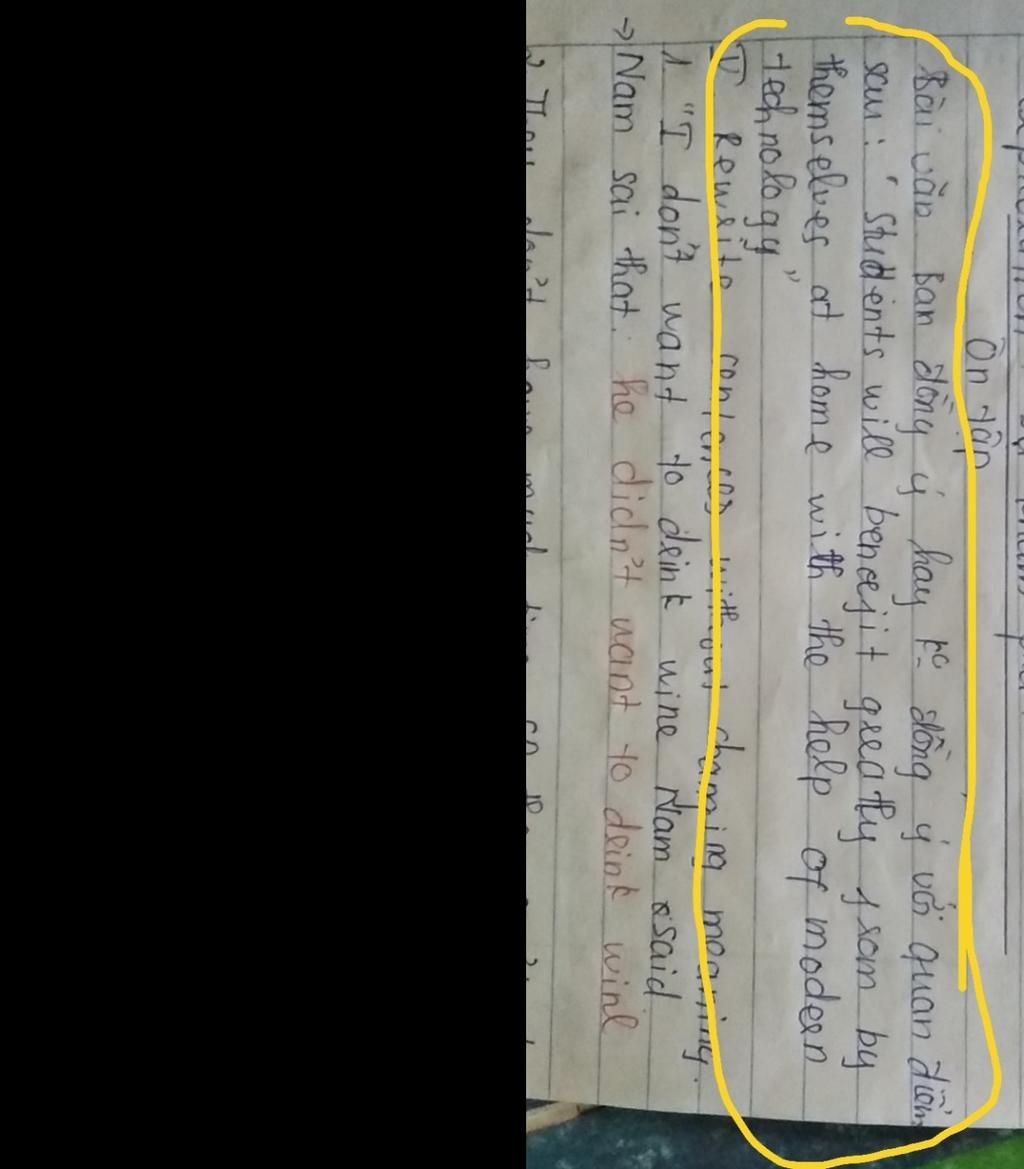 Ôn tập
Bài văn Bạn đồng ý hay kº đồng ý với quan điểm
sau: "Students will benefit greatly from by
themselves at home with the help of modern
technology"
V Rewrite sentences without chaming meaning.
1 "I don't want to drink wine Nam said
→ Nam sai that. he didn't want to drink winl
2 They don't have much time so